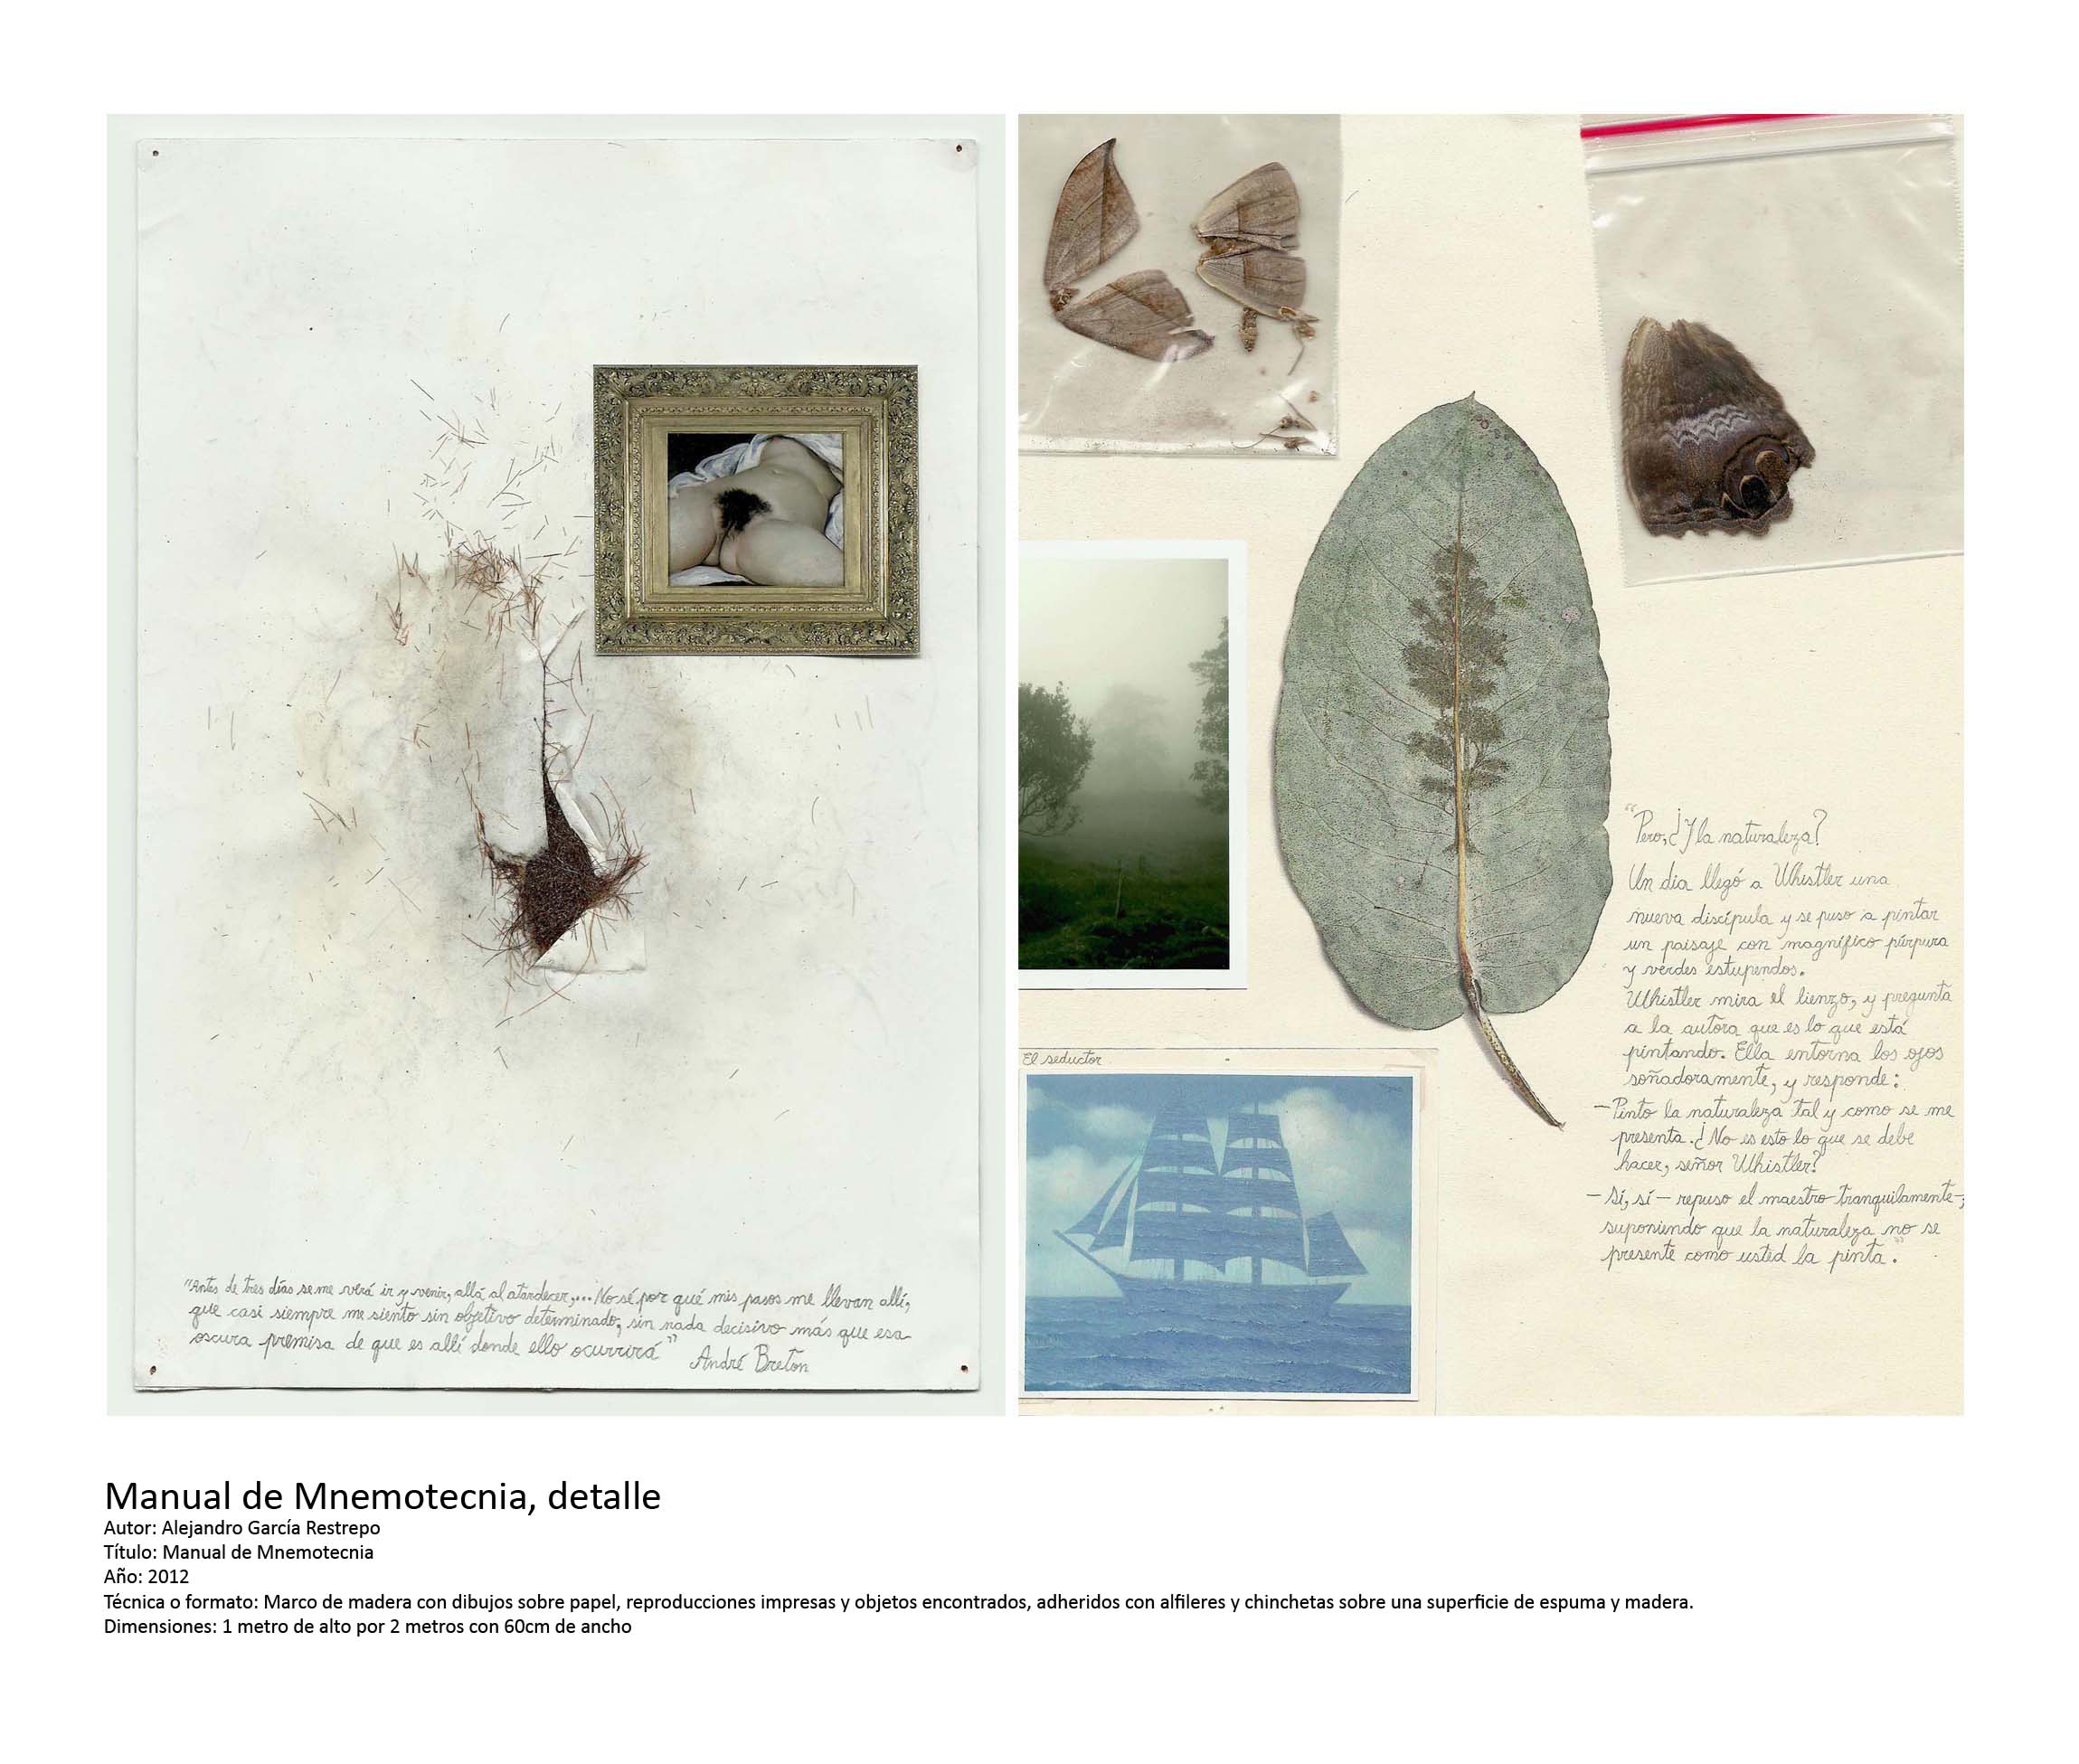 "Antes de tres días se me verá ir y venir, allá al atardecer,... No sé por qué mis pasos me llevan allí,
que casi siempre me siento sin objetivo determinado, sin nada decisivo más que esa
oscura premisa de que es allí donde ello ocurrirá"
André Breton
El seductor
"Pero, ¿Y la naturaleza?
Un dia llegó a Whistler una
nueva discípula y se puso a pintar
un paisaje con magnífico púrpura
y verdes estupendos.
Whistler mira el lienzo, y pregunta
a la autora que es lo que está
pintando. Ella entorna los ojos
soñadoramente, y responde:
—Pinto la naturaleza tal y como se me
presenta. ¿No es esto lo que se debe
hacer, señor Whistler?
—Sí, sí — repuso el maestro tranquilamente—,
suponiendo que la naturaleza no se
presente como usted la pinta."
Manual de Mnemotecnia, detalle
Autor: Alejandro García Restrepo
Título: Manual de Mnemotecnia
Año: 2012
Técnica o formato: Marco de madera con dibujos sobre papel, reproducciones impresas y objetos encontrados, adheridos con alfileres y chinchetas sobre una superficie de espuma y madera.
Dimensiones: 1 metro de alto por 2 metros con 60cm de ancho